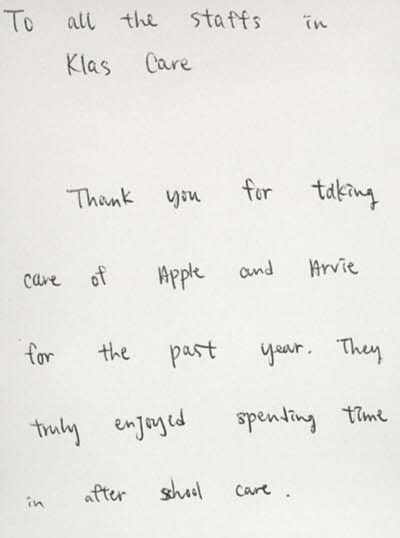 To all the staffs in
Klas Care
Thank you for taking
care of Apple and Arvie
for the past year. They
truly enjoyed spending time
in after school care.